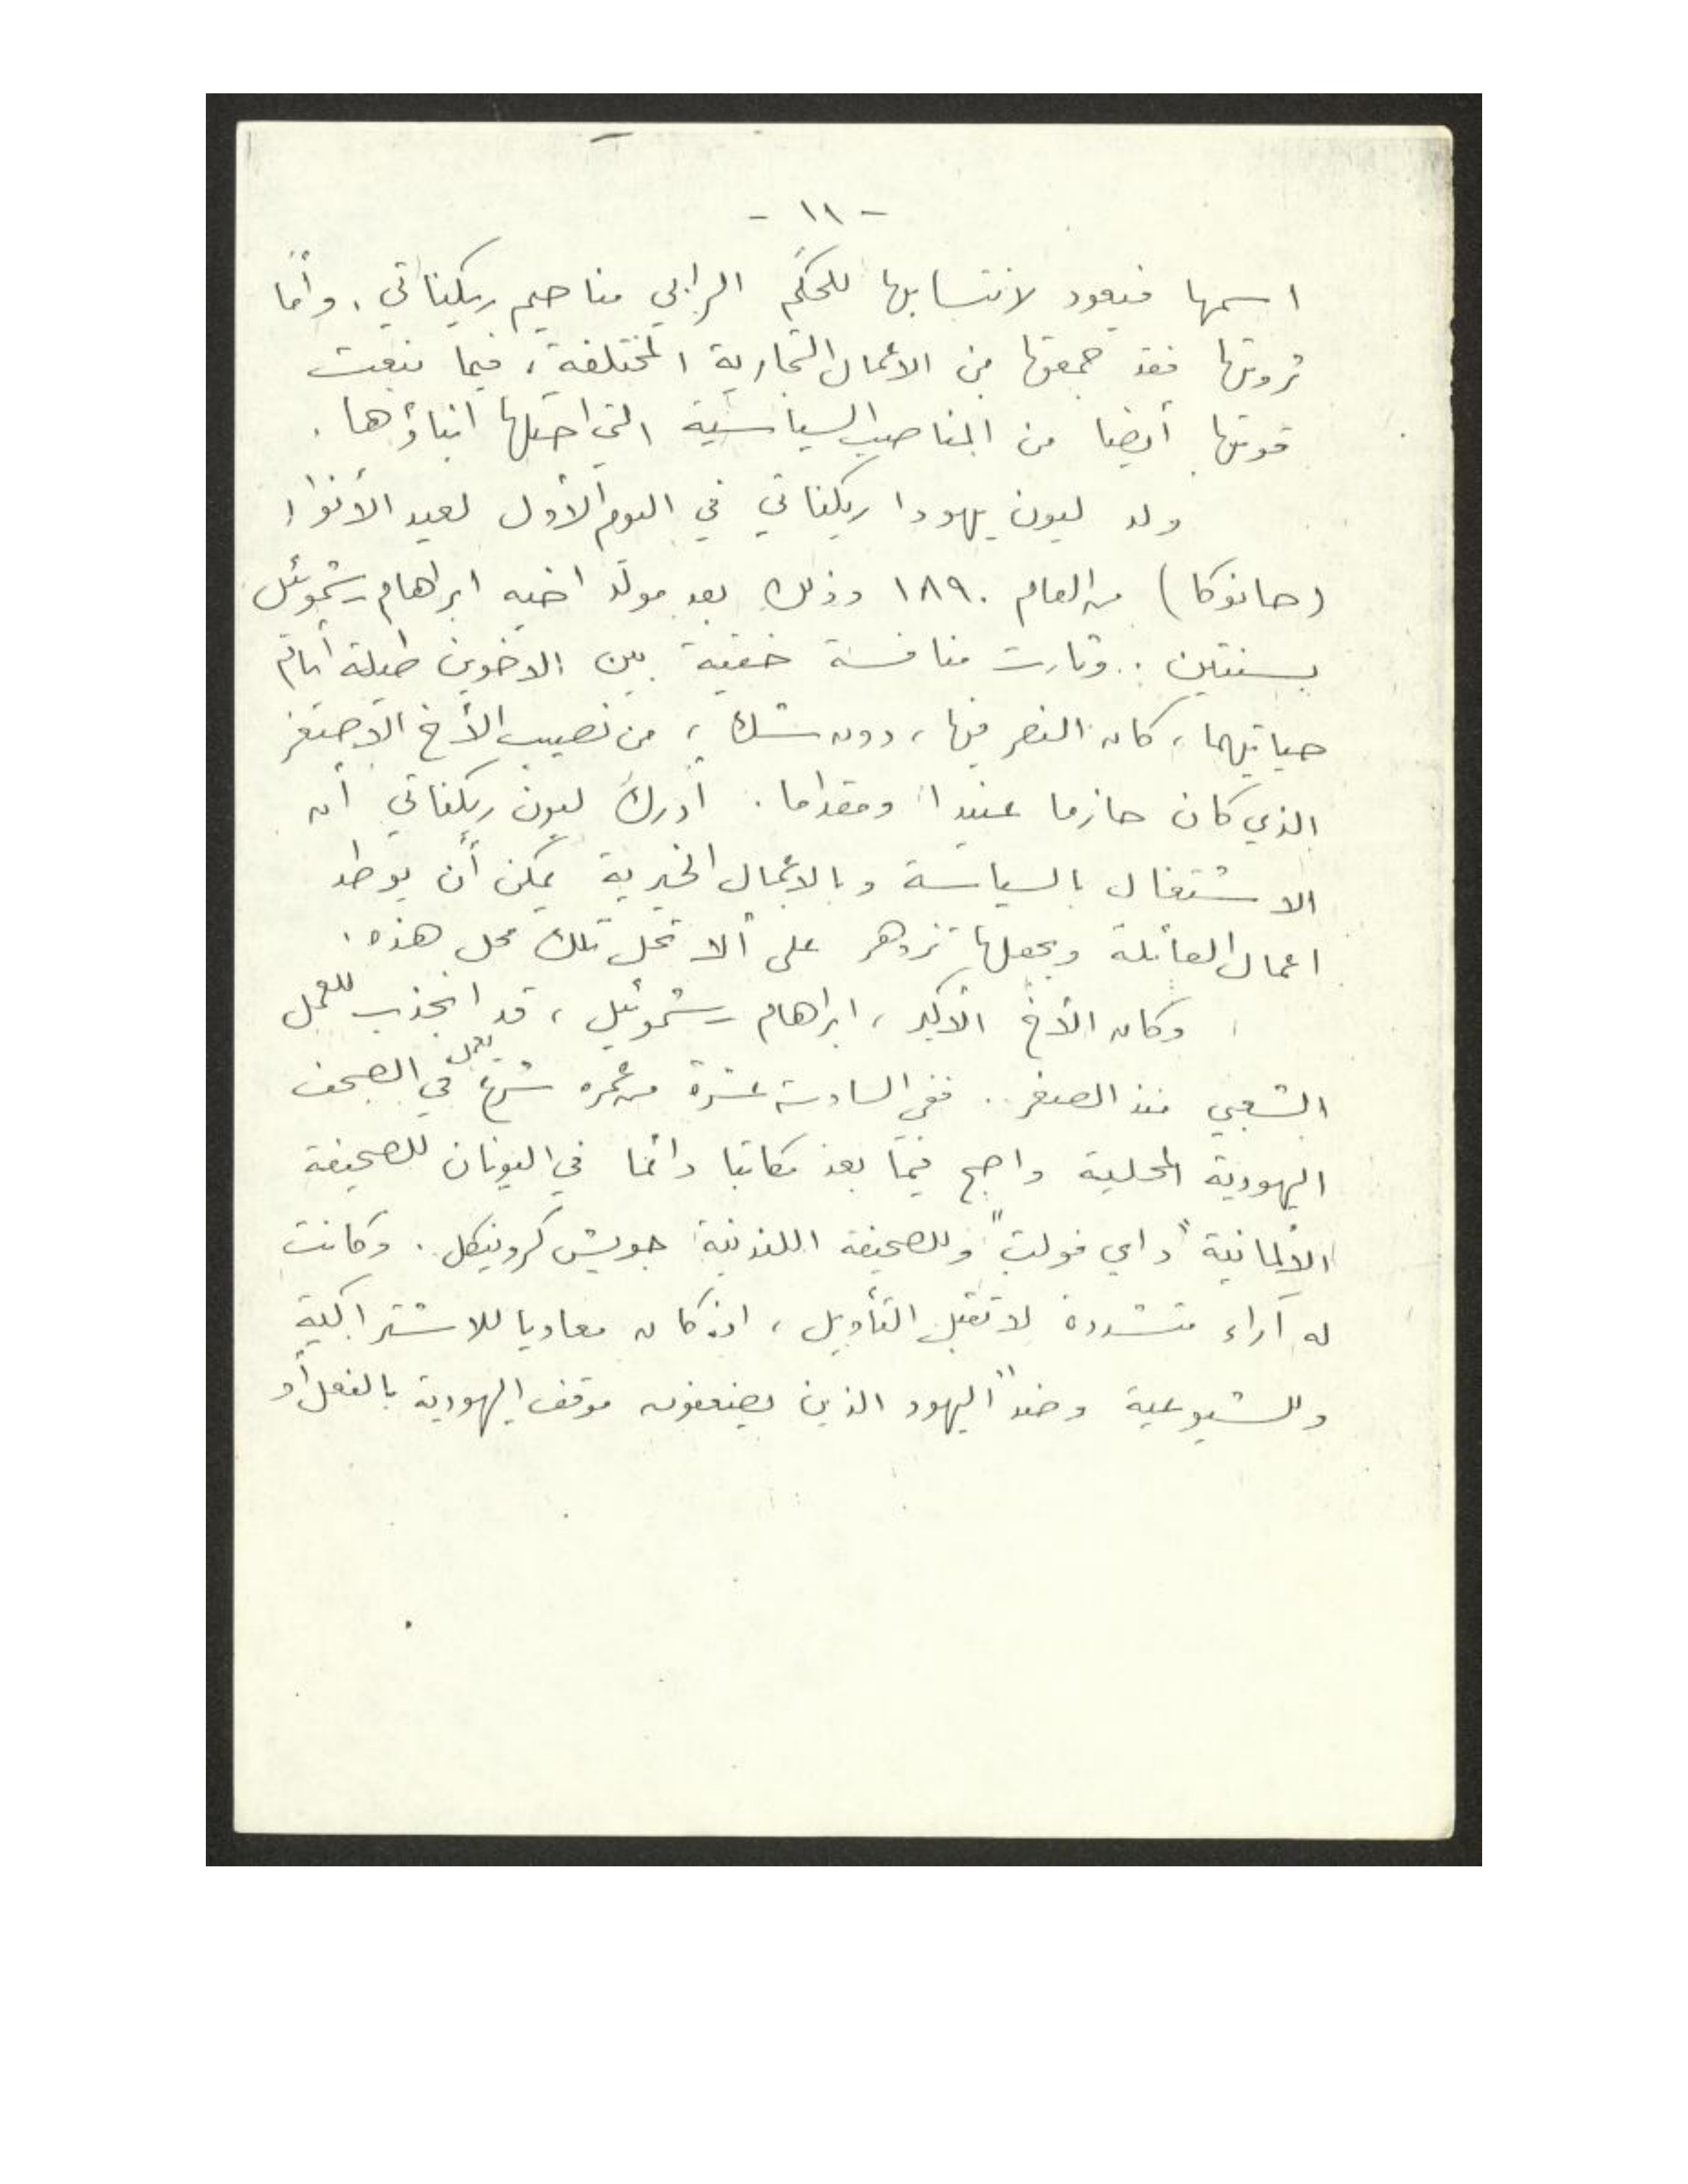 - ١١ -
اسمها فيعود لانتسابها للحكم الرابي مناحيم ريكيناتي، وأما
ثروتها فقد جمعتها من الاعمال التجارية المختلفة، فيما نبعت
قوتها أيضا من المناصب السياسية التي احتلها ابناؤها.
ولد ليون يهودا ريكناتي في اليوم الأول لعيد الأنوار
(حانوكا) من العام ١٨٩٠ وذلك بعد مولد اخيه ابراهام شموئيل
بسنتين.. وثارت منافسة خفية بين الاخوين طيلة أيام
حياتهما، كان النصر فيها، دون شك، من نصيب الأخ الاصغر
الذي كان حازما عنيدا ومقداما. أدرك ليون ريكناتي أن
الاشتغال بالسياسة وبالاعمال الخيرية يمكن أن يوطد
اعمال العائلة ويجعلها تزدهر على ألا تحل تلك محل هذه.
وكان الأخ الأكبر، ابراهام شموئيل، قد انجذب للعمل
الشعبي منذ الصغر.. ففي السادسة عشرة من عمره شرع يعمل في الصحف
اليهودية المحلية واصبح فيما بعد مكاتبا دائما في اليونان للصحيفة
الألمانية "داي فولت" وللصحيفة اللندنية جويش كرونيكل. وكانت
له آراء متشددة لا تقبل التأويل، اذ كان معاديا للاشتراكية
وللشيوعية وضد اليهود الذين يضعفون موقف اليهودية بالفعل أو